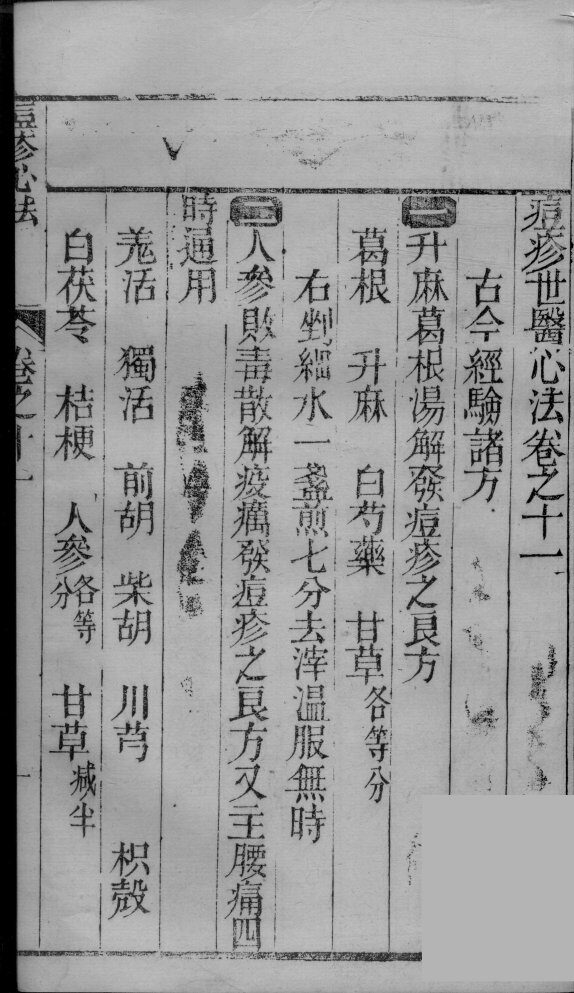 痘疹世醫心法卷之十一
古今經驗諸方
一升麻葛根湯解發痘疹之良方
葛根 升麻 白芍藥 甘草各等分
右剉細水一盞煎七分去滓温服無時
二人參敗毒散解疫癘發痘疹之良方又主腰痛四
時通用
羗活 獨活 前胡 柴胡 川芎 枳殻
白茯苓 桔梗 人參各等分 甘草減半
痘疹心法 卷之十一 一